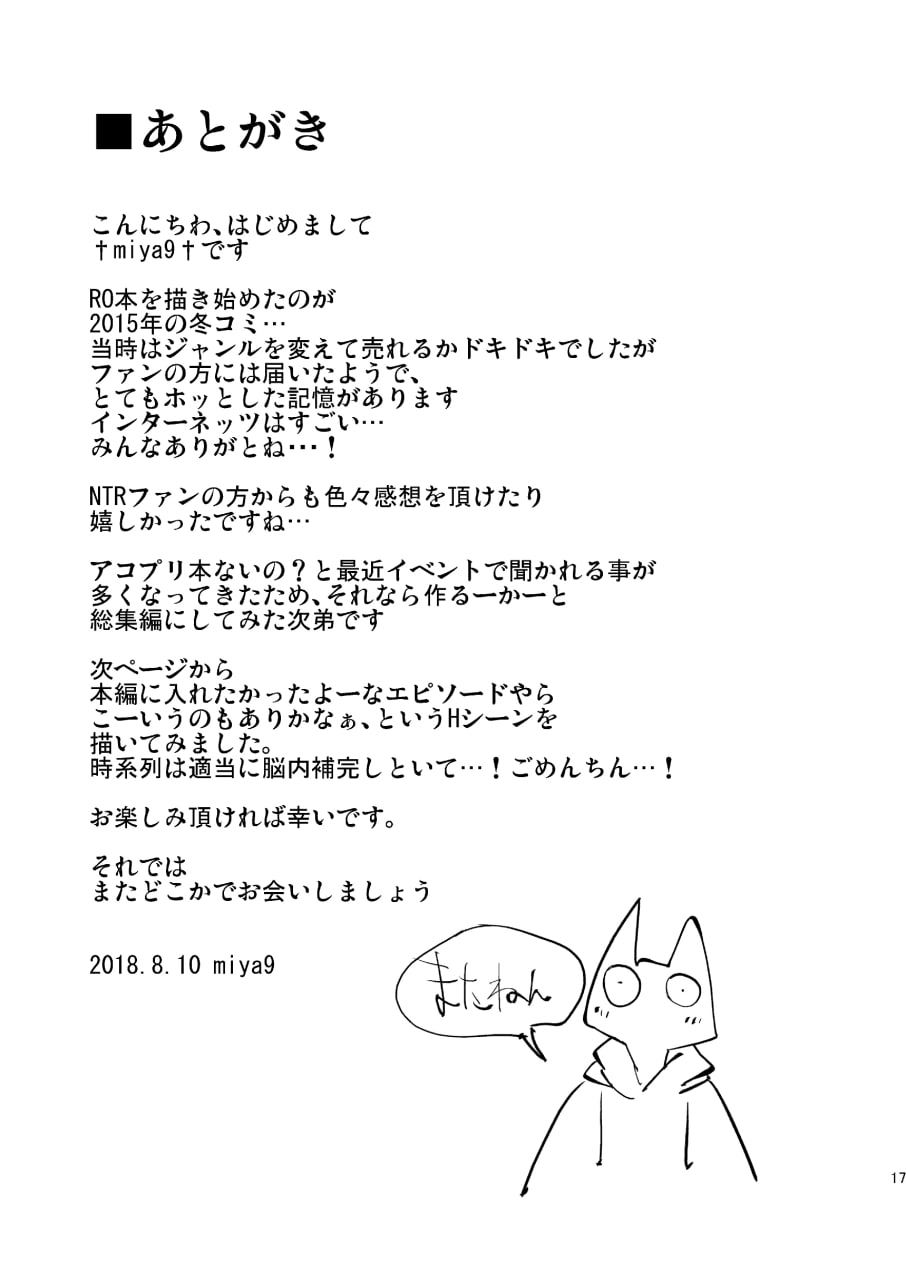 ■あとがき
こんにちわ、はじめまして
†miya9†です
RO本を描き始めたのが
2015年の冬コミ…
当時はジャンルを変えて売れるかドキドキでしたが
ファンの方には届いたようで、
とてもホッとした記憶があります
インターネッツはすごい…
みんなありがとね・・・！
NTRファンの方からも色々感想を頂けたり
嬉しかったですね…
アコプリ本ないの？と最近イベントで聞かれる事が
多くなってきたため、それなら作るーかーと
総集編にしてみた次第です
次ページから
本編に入れたかったよーなエピソードやら
こーいうのもありかなぁ、というHシーンを
描いてみました。
時系列は適当に脳内補完しといて…！ごめんちん…！
お楽しみ頂ければ幸いです。
それでは
またどこかでお会いしましょう
2018.8.10 miya9
またねん
17